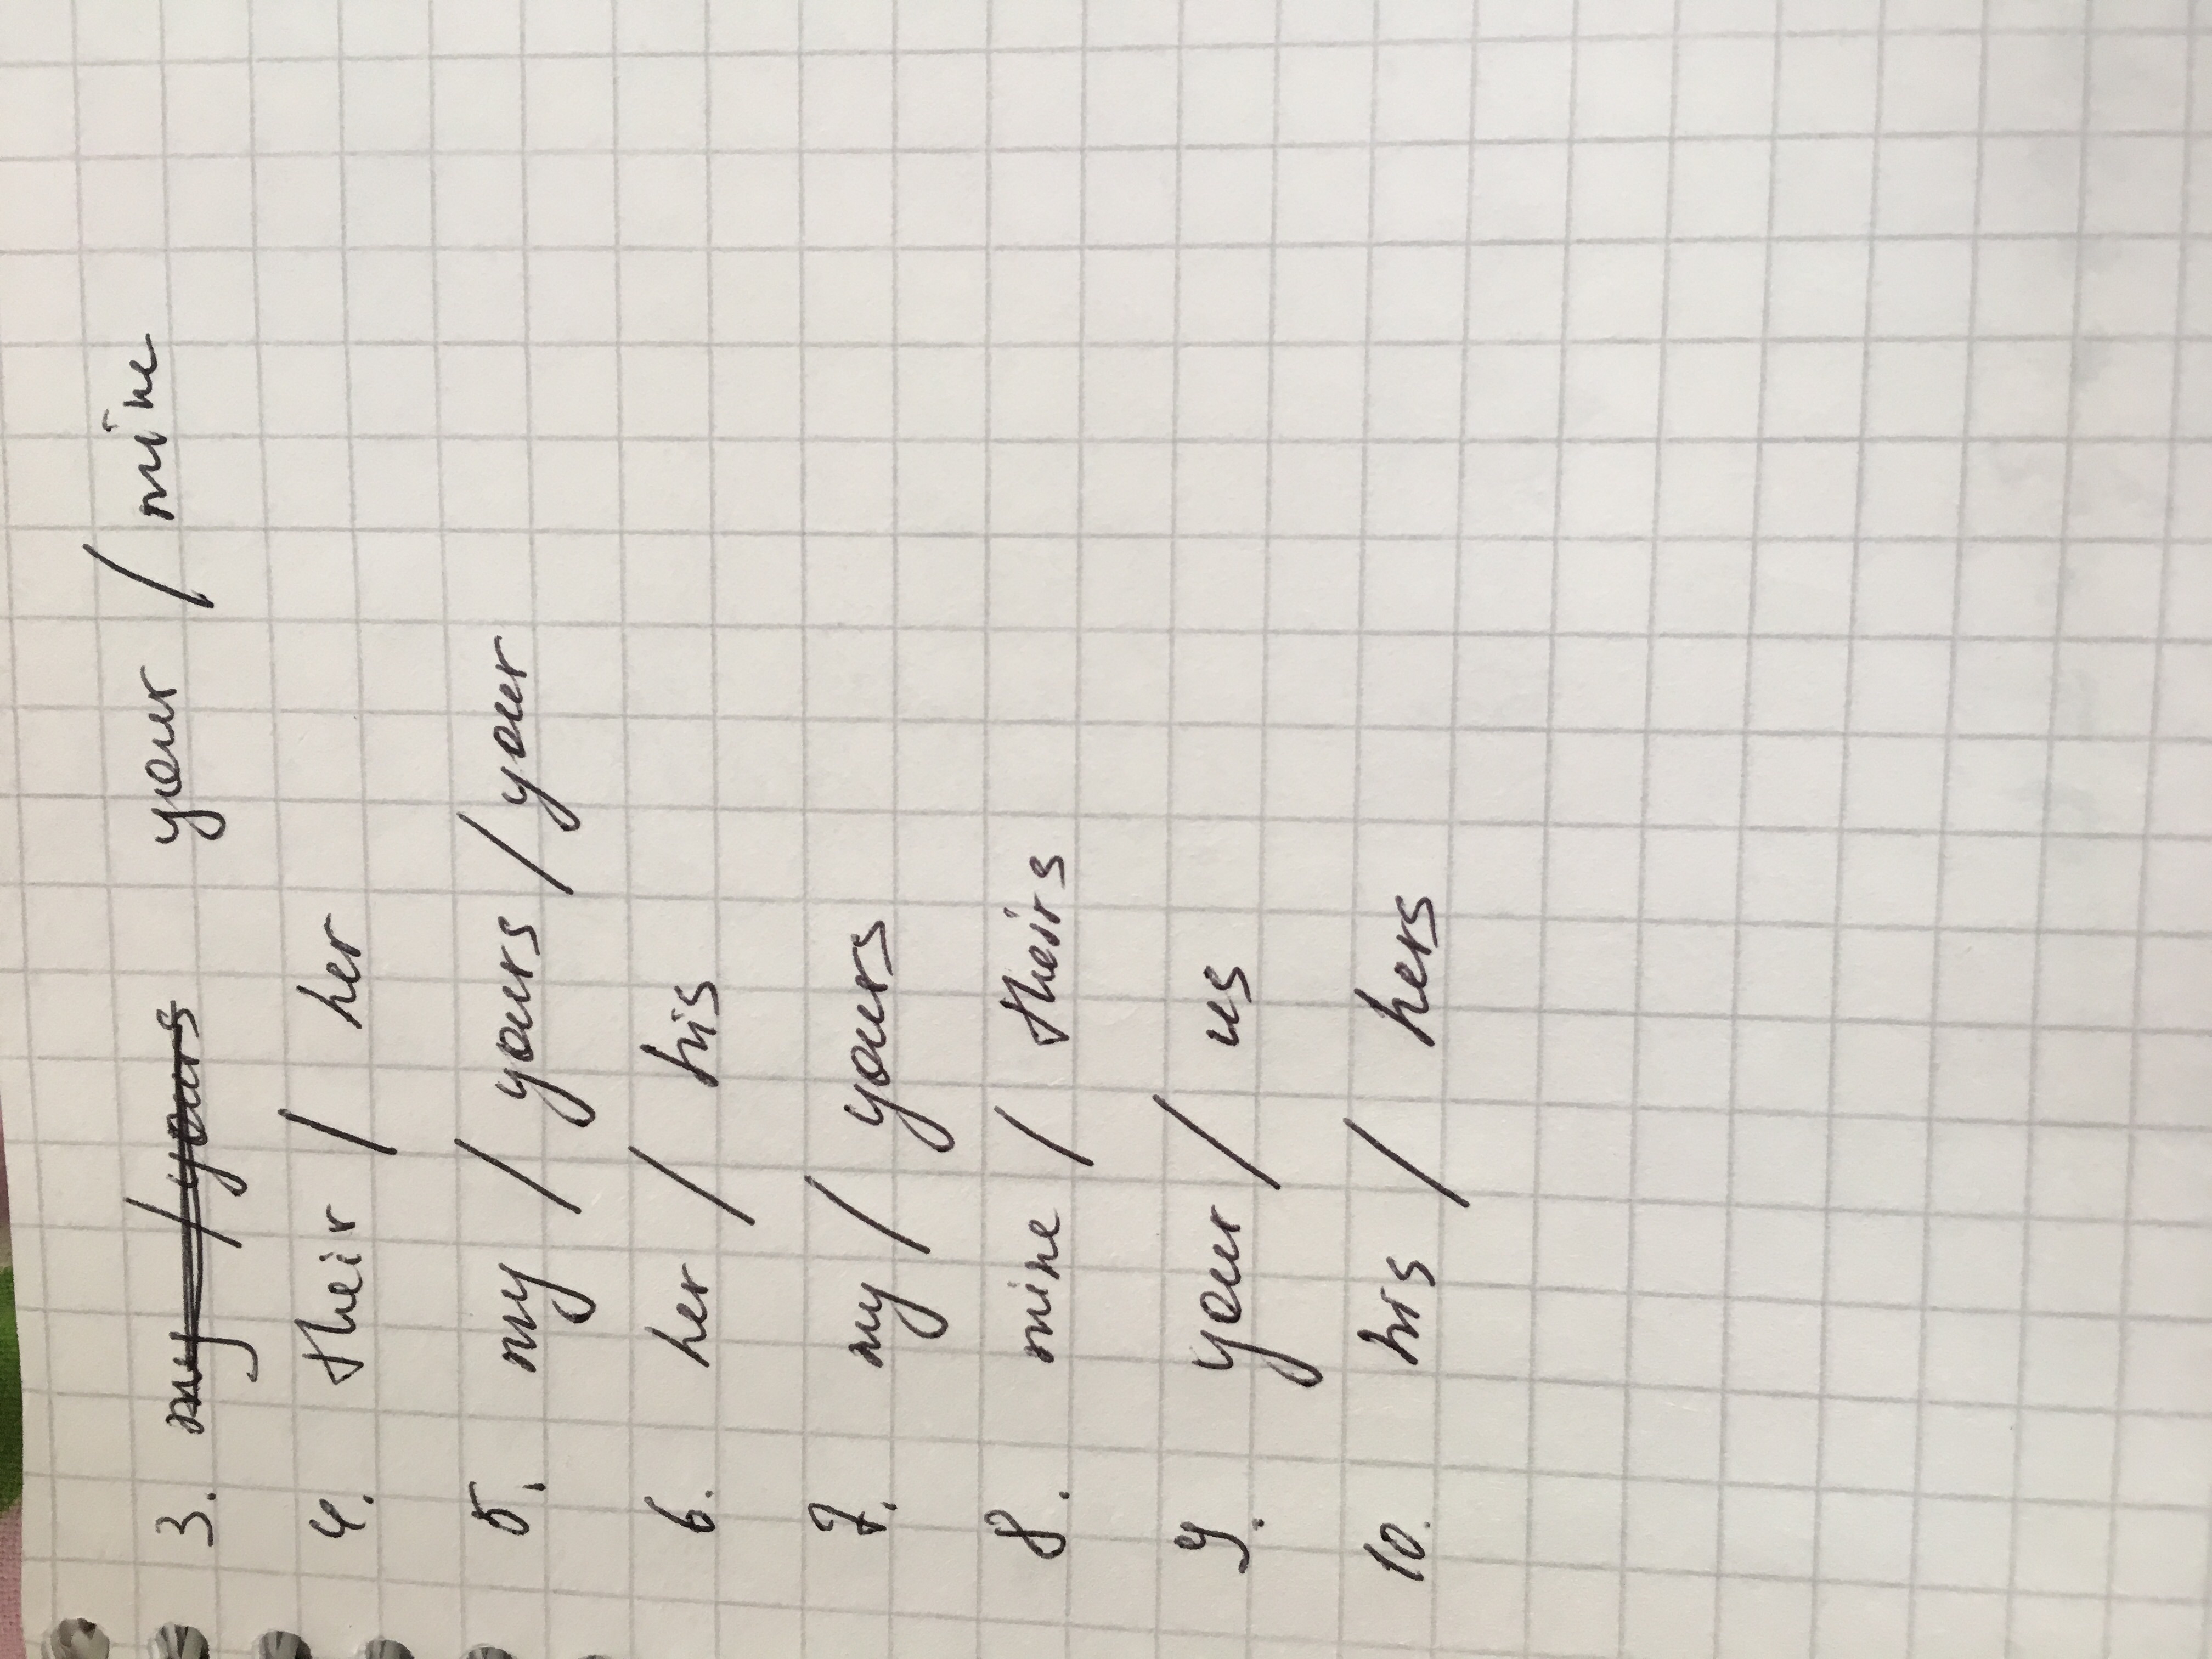 3. my / yours your / mine
4. their / her
5. my / yours / your
6. her / his
7. my / yours
8. mine / theirs
9. your / us
10. his / hers